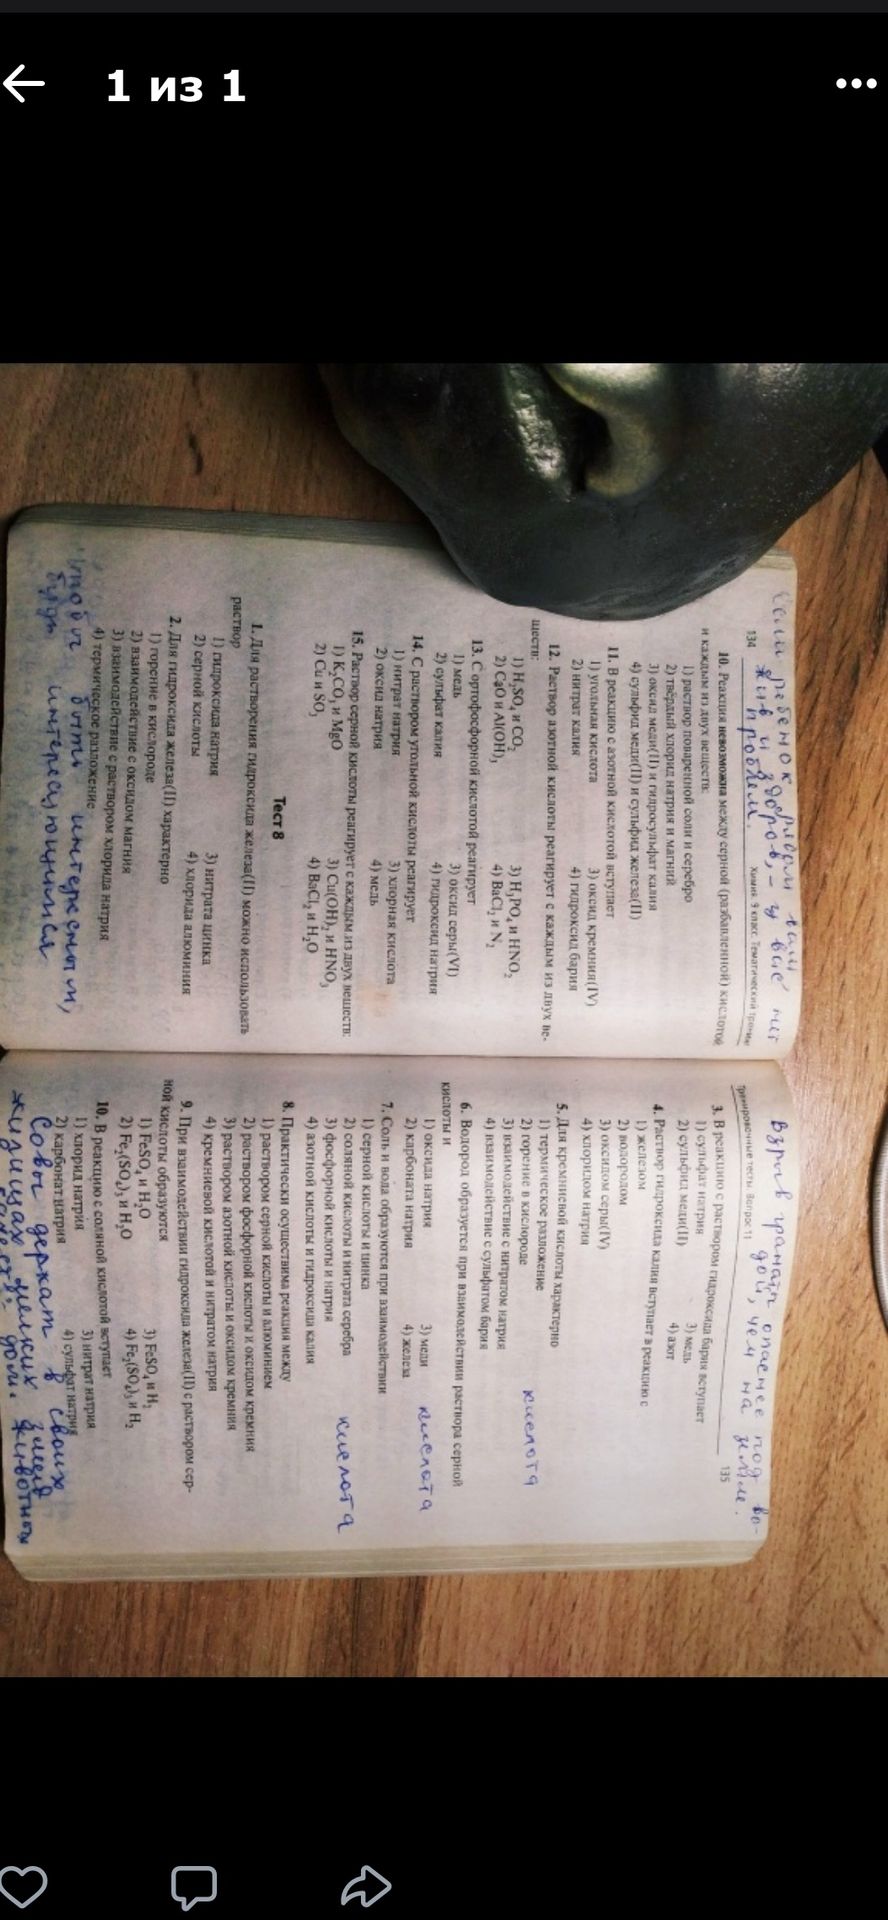 1 из 1
Если ребенок рядом
жив и здоров, - у вас нет
проблем.
134
Химия. 9 класс. Тематический тренинг
10. Реакция невозможна между серной (разбавленной) кислотой
и каждым из двух веществ:
1) раствор поваренной соли и серебро
2) твёрдый хлорид натрия и магний
3) оксид меди(II) и гидросульфат калия
4) сульфид меди(II) и сульфид железа(II)
11. В реакцию с азотной кислотой вступает
1) угольная кислота
3) оксид кремния(IV)
2) нитрат калия
4) гидроксид бария
12. Раствор азотной кислоты реагирует с каждым из двух ве-
ществ:
1) H₂SO₄ и CO₂
3) H₃PO₄ и HNO₂
2) CaO и Al(OH)₃
4) BaCl₂ и N₂
13. С ортофосфорной кислотой реагирует
1) медь
3) оксид серы(VI)
2) сульфат калия
4) гидроксид натрия
14. С раствором угольной кислоты реагирует
1) нитрат натрия
3) хлорная кислота
2) оксид натрия
4) медь
15. Раствор серной кислоты реагирует с каждым из двух веществ:
1) K₂CO₃ и MgO
3) Cu(OH)₂ и HNO₃
2) Cu и SO₃
4) BaCl₂ и H₂O
Тест 8
1. Для растворения гидроксида железа(II) можно использовать
раствор
1) гидроксида натрия
3) нитрата цинка
2) серной кислоты
4) хлорида алюминия
2. Для гидроксида железа(II) характерно
1) горение в кислороде
2) взаимодействие с оксидом магния
3) взаимодействие с раствором хлорида натрия
4) термическое разложение
Чтобы быть интересным,
будь интересующимся
Взрыв гранаты опаснее под во-
дой, чем на земле.
Тренировочные тесты. Вопрос 11
135
3. В реакцию с раствором гидроксида бария вступает
1) сульфат натрия
3) медь
2) сульфид меди(II)
4) азот
4. Раствор гидроксида калия вступает в реакцию с
1) железом
2) водородом
3) оксидом серы(IV)
4) хлоридом натрия
5. Для кремниевой кислоты характерно
1) термическое разложение
2) горение в кислороде
3) взаимодействие с нитратом натрия
4) взаимодействие с сульфатом бария
кислота
6. Водород образуется при взаимодействии раствора серной
кислоты и
1) оксида натрия
3) меди
2) карбоната натрия
4) железа
кислота
7. Соль и вода образуются при взаимодействии
1) серной кислоты и цинка
2) соляной кислоты и нитрата серебра
3) фосфорной кислоты и натрия
4) азотной кислоты и гидроксида калия
кислота
8. Практически осуществима реакция между
1) раствором серной кислоты и алюминием
2) раствором фосфорной кислоты и оксидом кремния
3) раствором азотной кислоты и оксидом кремния
4) кремниевой кислотой и нитратом натрия
9. При взаимодействии гидроксида железа(II) с раствором сер-
ной кислоты образуются
1) FeSO₄ и H₂O
3) FeSO₄ и H₂
2) Fe₂(SO₄)₃ и H₂O
4) Fe₂(SO₄)₃ и H₂
10. В реакцию с соляной кислотой вступает
1) хлорид натрия
3) нитрат натрия
2) карбонат натрия
4) сульфат натрия
Совы держат в своих
жилищах мелких змей